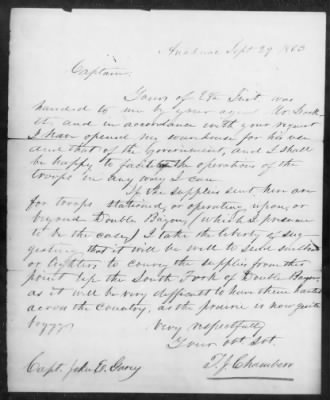 Anahuac Sept 29 1863
Captain
Yours of 27th Inst. was
handed to me by your agent Mr
and in accordance with your request
I have opened my warehouse for his use
and that of the Government, and I shall
be happy to facilitate the operations of the
troops in any way I can.
If the supplies sent here are
for troops stationed, or operating, upon, or
beyond Double Bayou, (which I presume
to be the case,) I take the liberty of sug-
gesting, that it will be well to send
or lighters to convey the supplies from this
point up the South Fork of Double Bayou,
as it will be very difficult to have them hauled
across the Country, as the prairie is now quite
boggy.
Very respectfully
Your obt Svt.
T. J. Chambers
Capt. John E. Garey